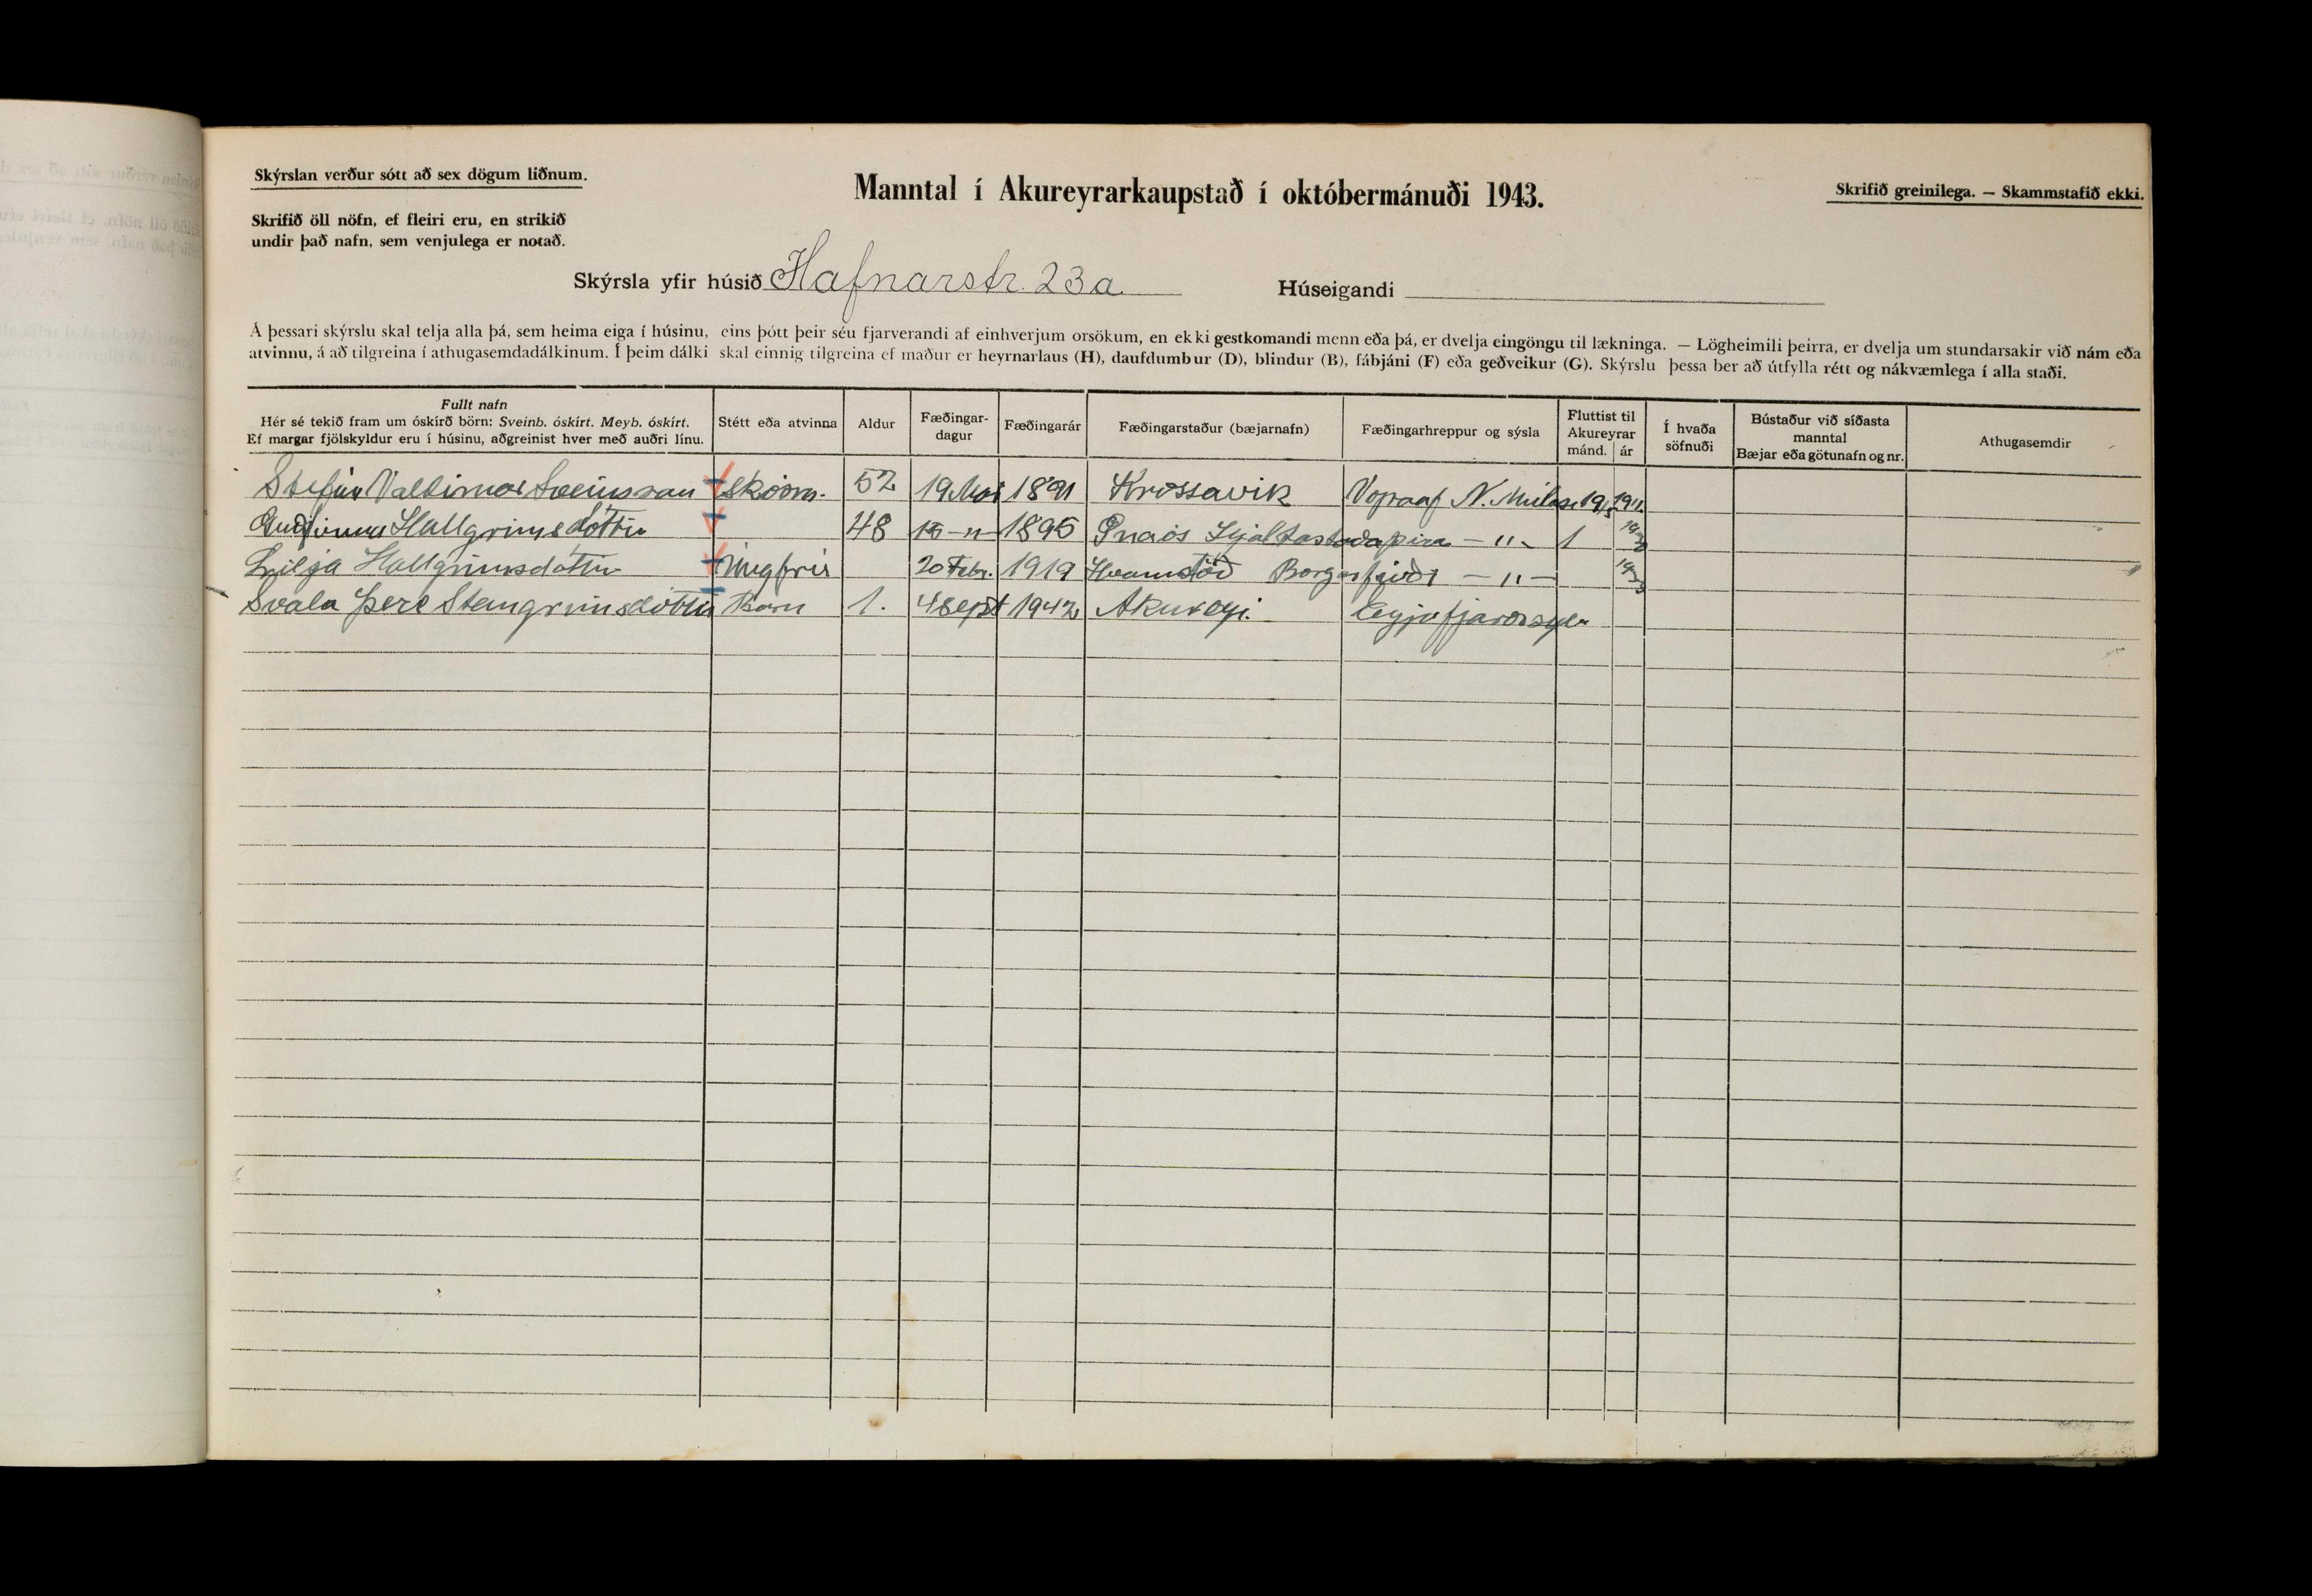 Skýrslan verður sótt að sex dögum liðnum.
Skrifið öll nöfn, ef fleiri eru, en strikið
undir það nafn, sem venjulega er notað.
Manntal í Akureyrarkaupstað í októbermánuði 1943.
Skrifið greinilega. — Skammstafið ekki.
Skýrsla yfir húsið Hafnarstr. 23a
Húseigandi
Á þessari skýrslu skal telja alla þá, sem heima eiga í húsinu, eins þótt þeir séu fjarverandi af einhverjum orsökum, en ekki gestkomandi menn eða þá, er dvelja eingöngu til lækninga. — Lögheimili þeirra, er dvelja um stundarsakir við nám eða
atvinnu, á að tilgreina í athugasemdadálkinum. Í þeim dálki skal einnig tilgreina ef maður er heyrnarlaus (H), daufdumbur (D), blindur (B), fábjáni (F) eða geðveikur (G). Skýrslu þessa ber að útfylla rétt og nákvæmlega í alla staði.
Fullt nafn
Hér sé tekið fram um óskírð börn: Sveinb. óskírt. Meyb. óskírt.
Ef margar fjölskyldur eru í húsinu, aðgreinist hver með auðri línu.
Stétt eða atvinna
Aldur
Fæðingar-
dagur
Fæðingarár
Fæðingarstaður (bæjarnafn)
Fæðingarhreppur og sýsla
Fluttist til
Akureyrar
mánd. ár
Í hvaða
söfnuði
Bústaður við síðasta
manntal
Bæjar eða götunafn og nr.
Athugasemdir
Stefán Valdimar Sveinsson skósm. 52 19 Mai 1891 Krossavik Vopnaf N. Mulas
Hallgrimsdóttir 48 15 — " — 1895 Hjaltastaðaþin — " — 1
Lilja Hallgrimsdóttir Ungfrú 20 Febr. 1919 Borgarfirði — " —
Svala Perl Steingrimsdóttir Barn 1. 4 Sept 1942 Akureyri. Eyjafjarðarsýs